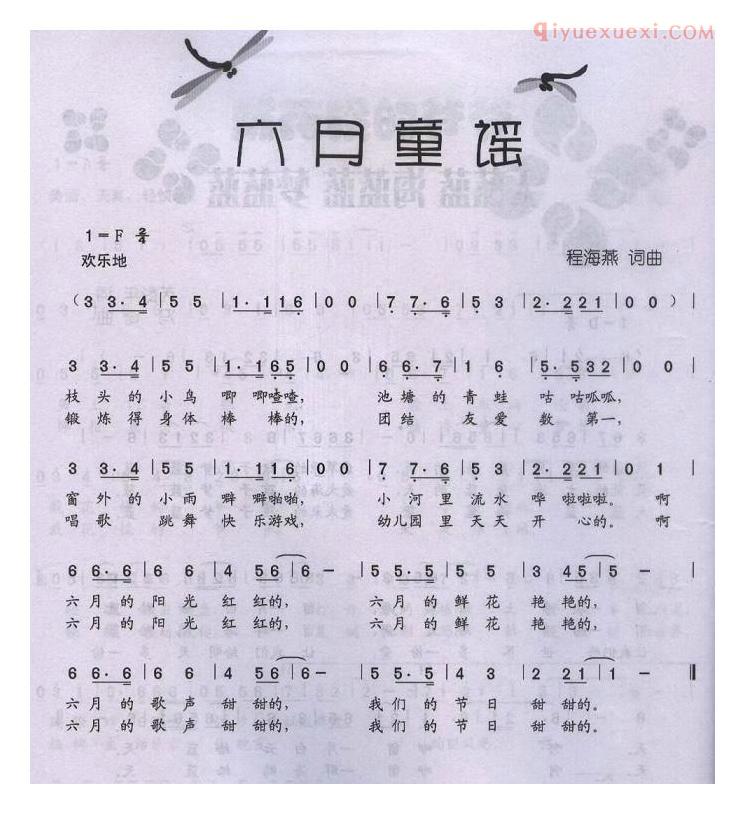 qiyuexuexi.COM
六月童谣
1=F 2/4
欢乐地
程海燕 词曲
(3 3·4 | 5 5 | 1·116 | 0 0 | 7 7·6 | 5 3 | 2·221 | 0 0 ) |
3 3·4 | 5 5 | 1·165 | 0 0 | 6 6·7 | 1 6 | 5·532 | 0 0 |
枝头的小鸟 唧 唧喳喳, 池塘的青蛙 咕 咕呱呱,
锻炼得身体 棒 棒的, 团结 友爱 数 第一,
3 3·4 | 5 5 | 1·116 | 0 0 | 7 7·6 | 5 3 | 2·221 | 0 1 |
窗外的小雨 噼 噼啪啪, 小河里流水 哗 啦啦啦。 啊
唱歌 跳舞 快乐游戏, 幼儿园里天天 开 心的。 啊
6 6·6 | 6 6 | 4 56 | 6 – | 5 5·5 | 5 5 | 3 45 | 5 – |
六月的阳光 红 红的, 六月的鲜花 艳 艳的,
六月的阳光 红 红的, 六月的鲜花 艳 艳的,
6 6·6 | 6 6 | 4 56 | 6 – | 5 5·5 | 4 3 | 2 21 | 1 – ‖
六月的歌声 甜 甜的, 我们的节日 甜 甜的。
六月的歌声 甜 甜的, 我们的节日 甜 甜的。